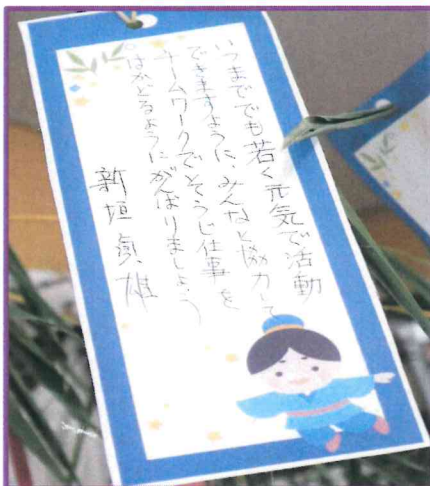 いつまででも若く元気で活動
できますように、みんなと協力して
チームワークでそうじ仕事を
はかどるようにがんばりましょう
新垣 貞雄